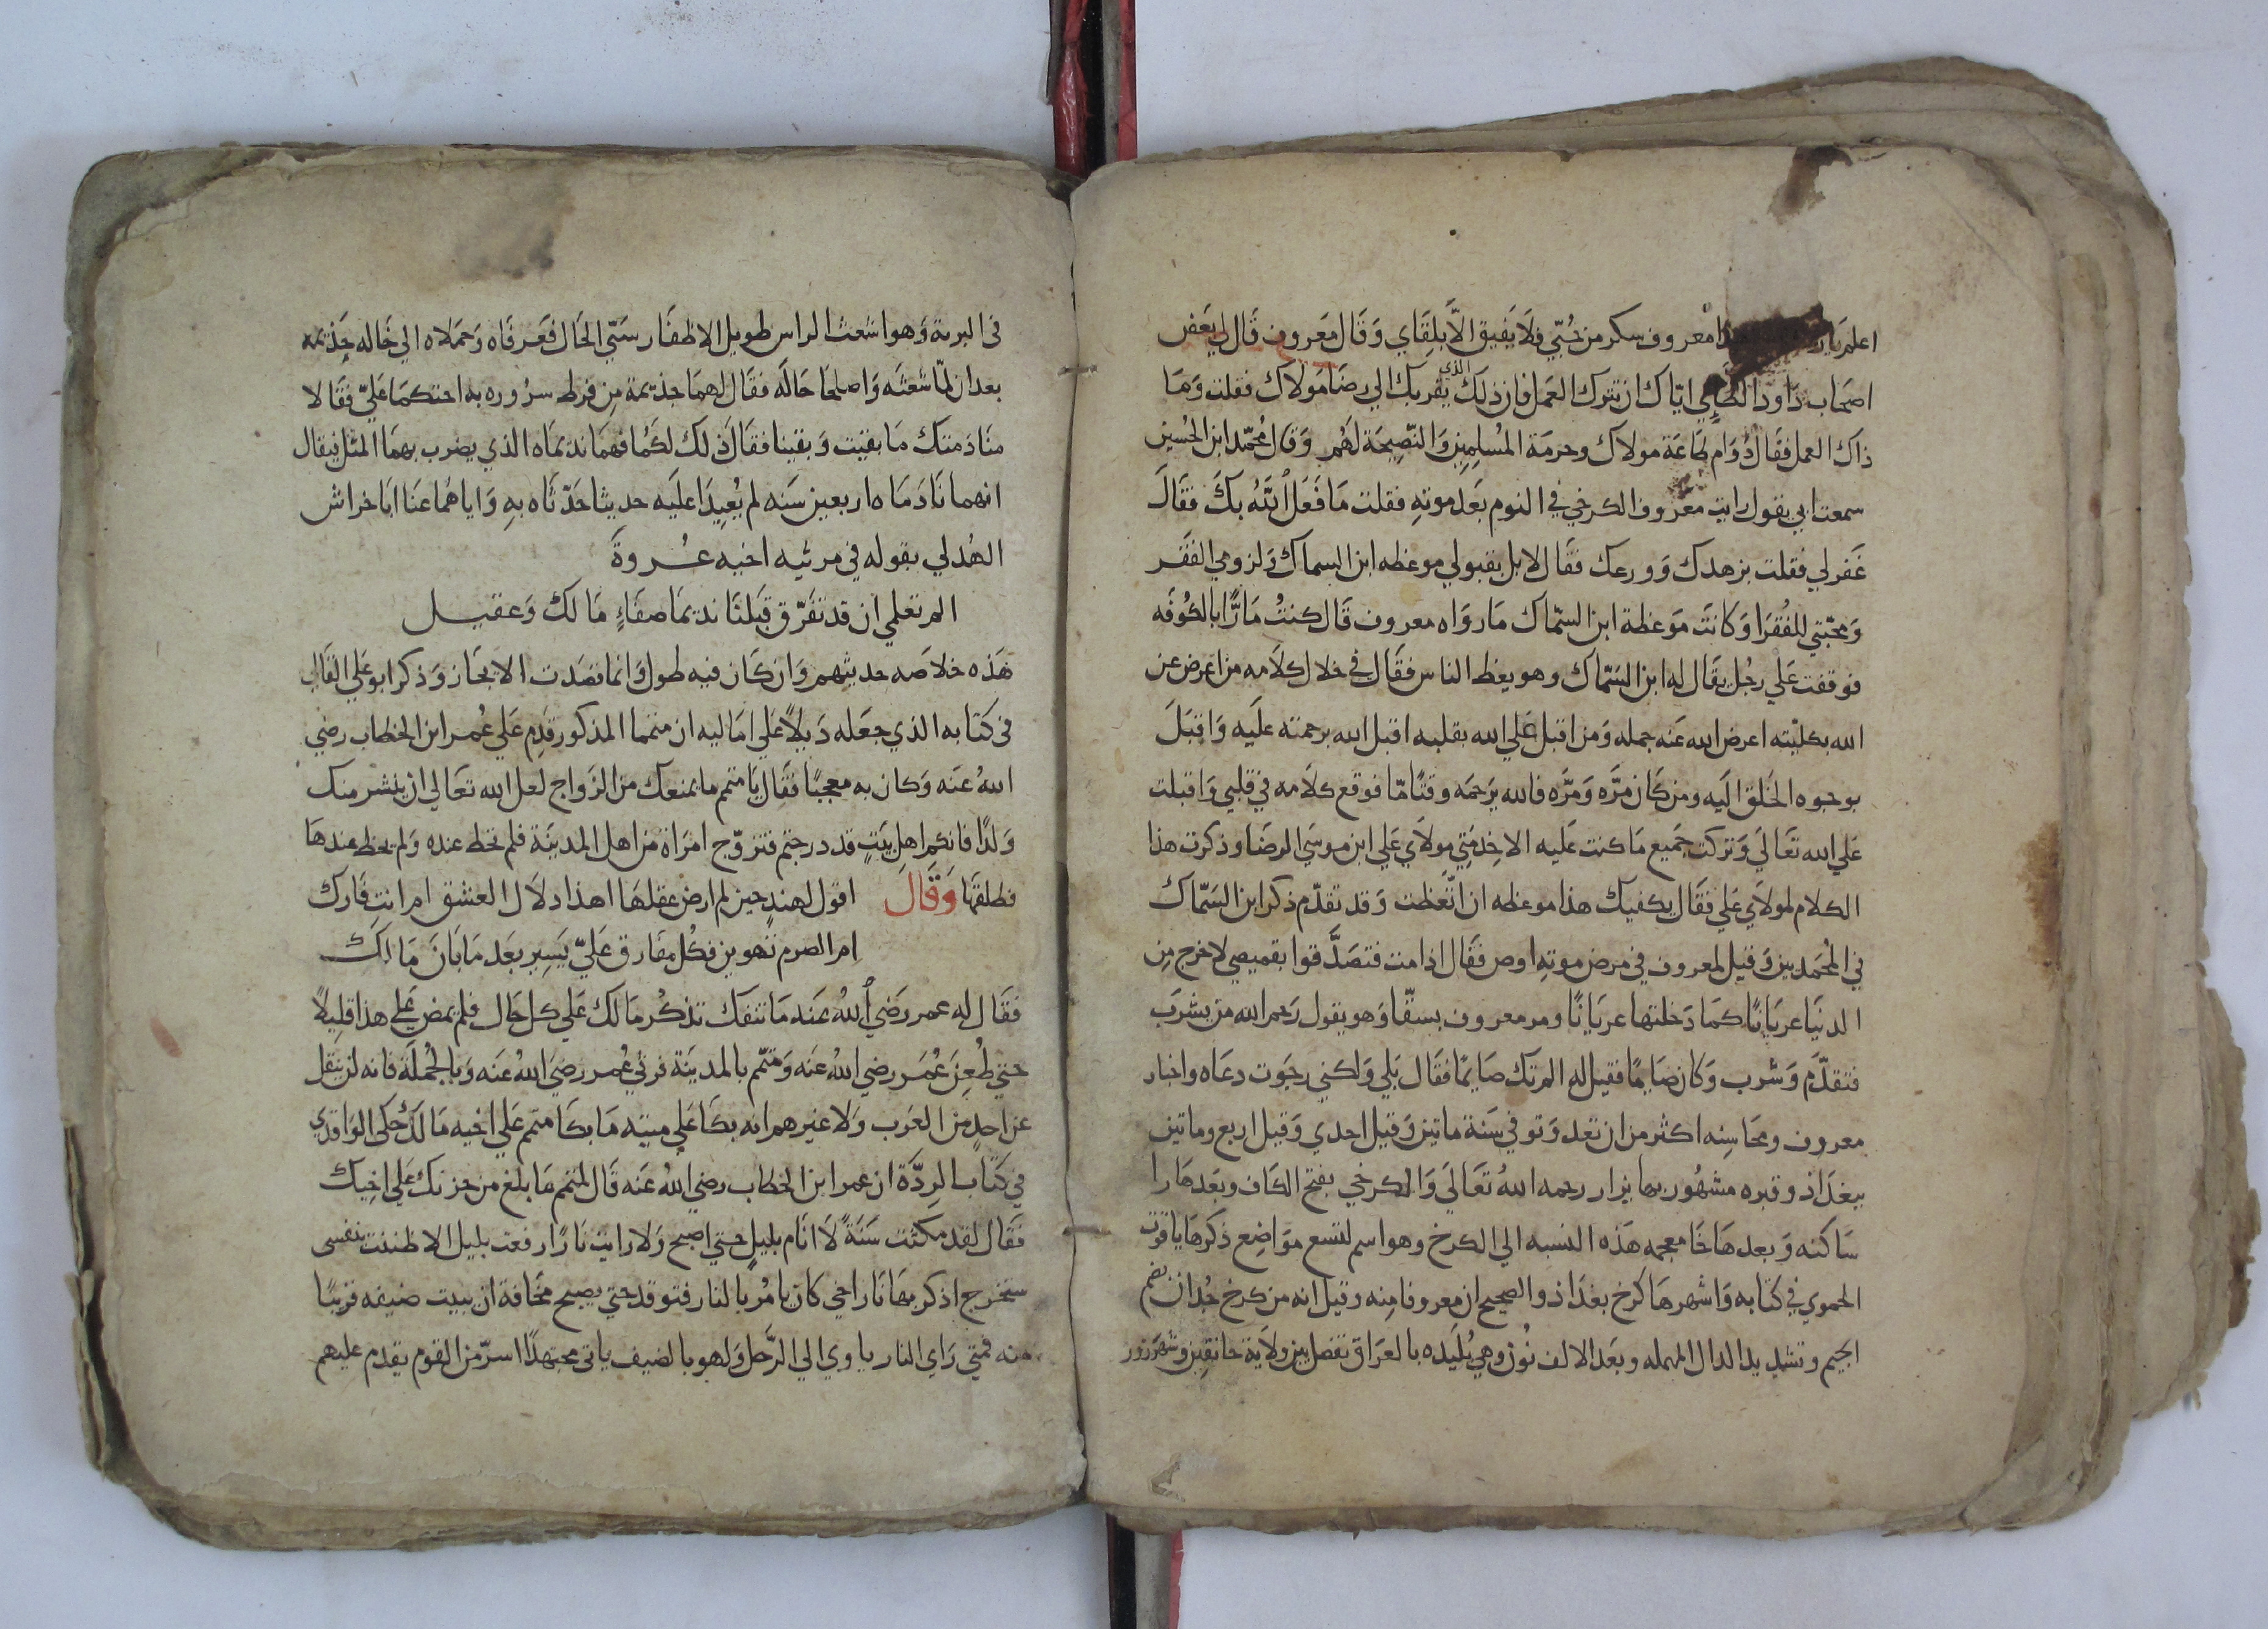 اعلم يا رب هذا معروف سكر من حُبّي فلَا يَفيق الاَّ بلِقَاي وَقَال مَعَروف قَال لي بعَض
اصحَاب دَاودَ الطَاِي ايّاك ان تترك العَمل فان ذلَكَ الذي يقربك الي رضَا مَولاك فقلت وَمَا
ذاك العمل فقَال دُوَام طَاعَة مولاك وحرمَة المُسلِمِين وَالنّصِيحَة لهَم وَقال مُحمّد ابن الحُسين
سمعت ابي يقول رايت معَروف الكرخي في النوم بَعَد موتهِ فقلت مَا فَعَل اللّهُ بكَ فقَالَ
غَفر لي فقلت بزهدك وَورعك فقَال لا بل بقبولي موعظه ابن السماك وَلزومي الفقَر
وَمحبّتي للفُقرَا وَكَانَت مَوعظة ابن السّمّاك مَا روَاه معروف قَال كنتُ مَارًّا بالكُوفَه
فوقفت عَلي رجُل يقَال له ابن السّمّاك وهو يعظ الناس فقَال في خلال كلاَمه من اعرض عن
الله بكليّته اعرض الله عَنه جمله وَمن اقبل عَلي الله بقلبه اقبل الله برحمته علَيه وَاقبَلَ
بوجوه الخَلق الَيه ومن كَان مرَّه وَمَرَّه فالله يرَحمَه وقتًا مّا فوقع كلاَمه في قلبي وَاقبلت
عَلي الله تعَالَي وَتركت جَميع مَا كنت عَليه الا خِدمَتِي مولاَي عَلي ابن موسَي الرضَا وذكرت هذا
الكلام لمولاَي عَلي فقَال يكفيك هذا موعظه ان اتّعَظت وَقد تقدّم ذكر ابن السَمّاك
في المُحَمدين وَقيل لمعروف في مرض موتهِ اوص فقَال اذا مت فتصَدَّقوا بقميصي لاخرج مِن
الدنيَا عريَانًا كمَا دَخلتها عريَانًا ومر معروف بسقّا وَهو يقول رَحم الله من يشرَب
فتقدّم وَشرب وَكان صَايمًا فقيل له الم تك صَايمًا فقَال بَلي وَلكني رجَوت دعَاه واخبار
معروف ومحَاسِنه اكثر من ان تعد وَتوفي سَنة ماتين وَقيل احدي وَقيل اربع وماتين
ببغدَاذ وقبره مشهُور بها يزار رحمه اللهُ تعَالَي وَالكرخي بفتح الكَاف وبعَدهَا را
سَاكنه وَبعدهَا خَا معجمه هَذه النسبه الي الكرخ وهو اسم لتسع موَاضِع ذكرهَا ياقوت
الحموي في كتَابه وَاشهرهَا كرخ بغدَاذ والصحيح ان معروفا مِنه وقيل انه من كرخ جُدان بضم
الجيم وتشديد الدال المهمله وبعَد الالف نُون وهي بُلَيده بالعرَاق تفصل بين ولاَية خانقِين وشهرَزور
في البرية وَهو اشعث الراس طويل الاظفَار سَيّي الحَال فعَرفَاه وَحمَلاه الي خَاله جَذيمَه
بعد ان لمّا شَعثَه وَاصلحَا حَالَه فقَال لهمَا جذيمة مِن فرط سرُوره به احتكمَا عَليّ فقَالا
منَادَمتك مَا بقيَت وَبقينا فقَال ذلك لكَما فهمَا نديمَاه الذي يضرب بهمَا المثل فيقال
انهما نَادَمَاه اربعين سَنه لم يُعِيدَا علَيه حديثا حَدّثَاه بهِ وَاياهُما عنَا ابَا خراش
الهُدلي بقوله في مرثيه اخيه عُروةَ
الم تعلمي ان قد تفَرّق قَبلنَا نديمَا صفَاءٍ مَالك وَعقيل
هَذه خلاصَه حديثهم وَان كَان فيه طول وَانما قصَدت الايجَاز وَذكر ابو عَلي القَالي
في كتَابه الذي جعَله ذَيلاً عَلي امَاليه ان متمما المذكور قدِم عَلي عُمر ابن الخطاب رضي
اللهُ عَنه وَكان به معجبًا فقَال يَا متمم ما يمنعك من الزَواج لعل الله تعَالي ان ينشر منك
وَلدًا فانكم اهل بيَتٍ قد درجتم فتزوّج امرَاة من اهل المدينَة فلم تحَظ عنده وَلم يحَظ عندهَا
فطلقهَا وَقَال اقول لهندٍ حين لم ارضَ عقلهَا اهذا دلاَل العشق ام انتِ فَارك
ام الصرم تهوين فكُل مفَارق عَليّ يَسِير بعَد مَا بَانَ مَالك
فقَال له عمر رَضي اللهُ عَنه مَا تنفك تذكُر مَالك عَلي كل حَال فلم يمض عَلي هذا قلِيلاً
حتي طُعِنَ عُمَر رضي اللهُ عَنه وَمتمّم بالمدينَة فرثي عُمر رضيَ اللهُ عَنه وَبالجُملَة فانه لم ينقل
عن احدٍ من العَرب وَلا غيرهم انه بكَا عَلي ميته مَا بكَا متمم عَلي اخيه مَالك حكي الوَاقدي
في كتَاب الرِدَّة ان عمر ابن الخطاب رضي اللهُ عَنه قَال لمتمم مَا بلغ من حزنك عَلي اخِيك
فقَال لقد مكثت سَنَةً لاَ انَام بليلٍ حتي اصبح وَلا رايت نَارًا رفعت بليل الا ظننت نفسي
ستخرج اذكر بهَا نَار اخي كان يَامُر بالنار فتوقد حتي يصبح مخَافة ان يبيت ضيفه قريبًا
منه فمتي رَاي النار ياوي الي الرَّحل وَلهو بالضيف ياتي مجتهدًا اسرّ من القوم يقدم عليهم